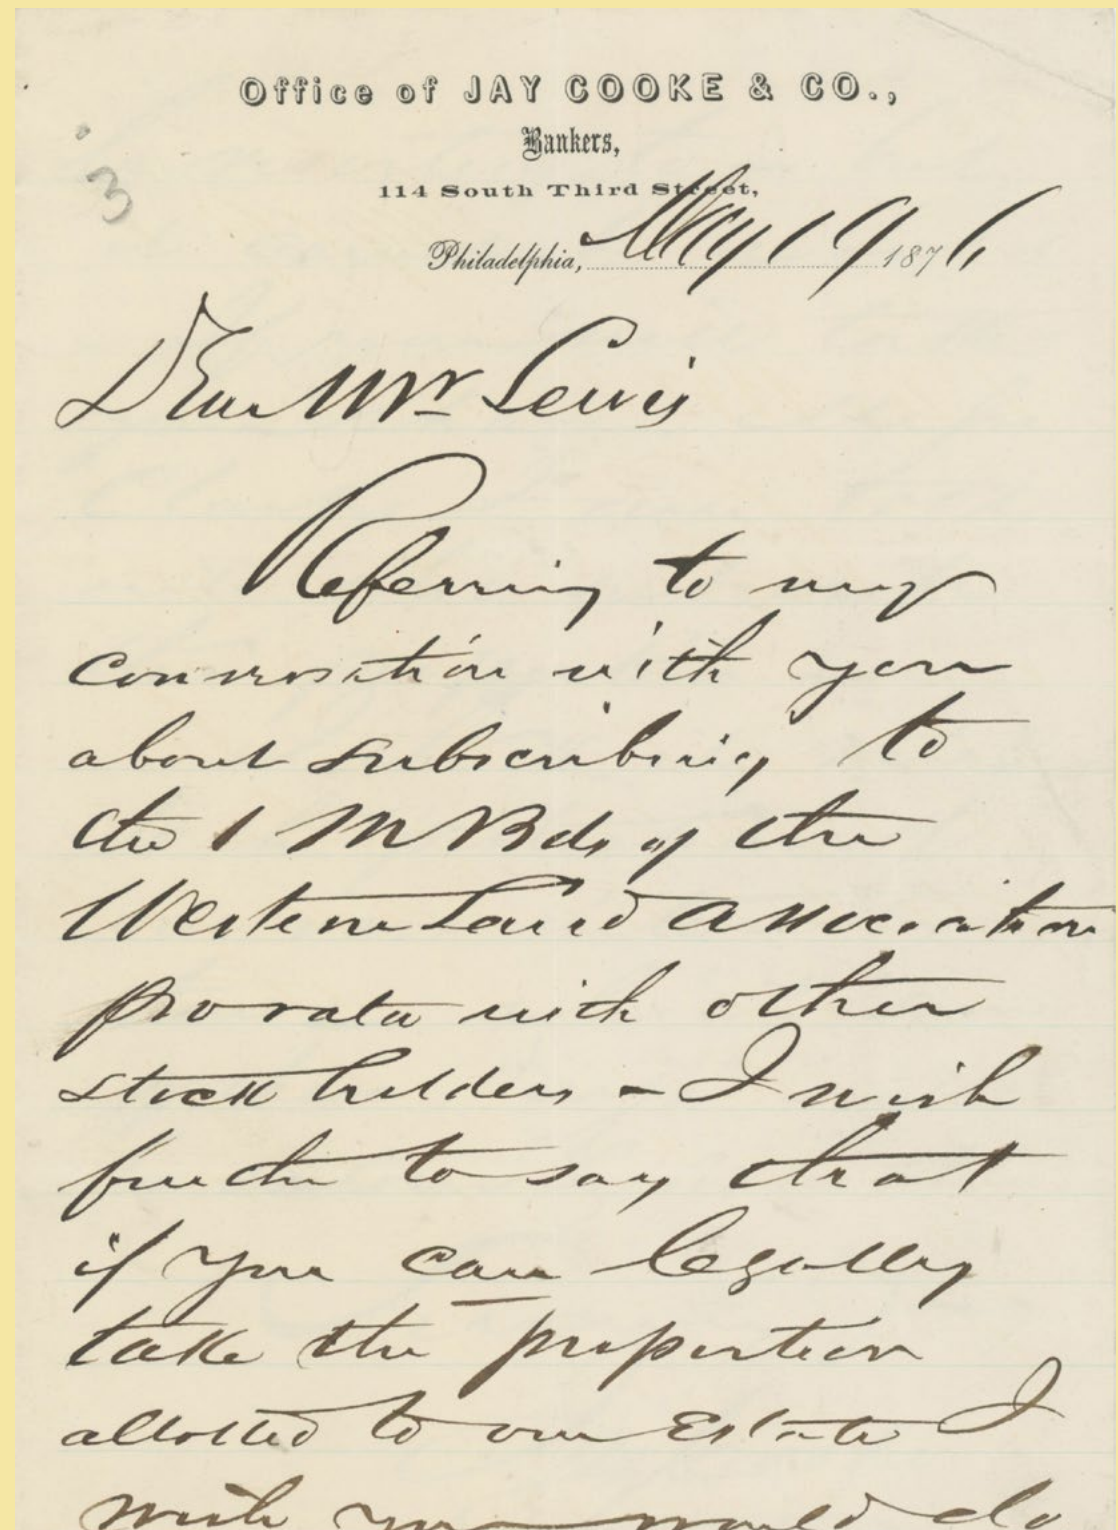 Office of JAY COOKE & CO.,
Bankers,
114 South Third Street,
3
Philadelphia, May 19 1876
Dear Mr Lewis
Referring to my
conversation with you
about subscribing to
the 1 M Bds of the
Western Land Association
pro rata with other
stock holders - I wish
further to say that
if you can legally
take the proportion
allotted to our Estate I
wish you would do